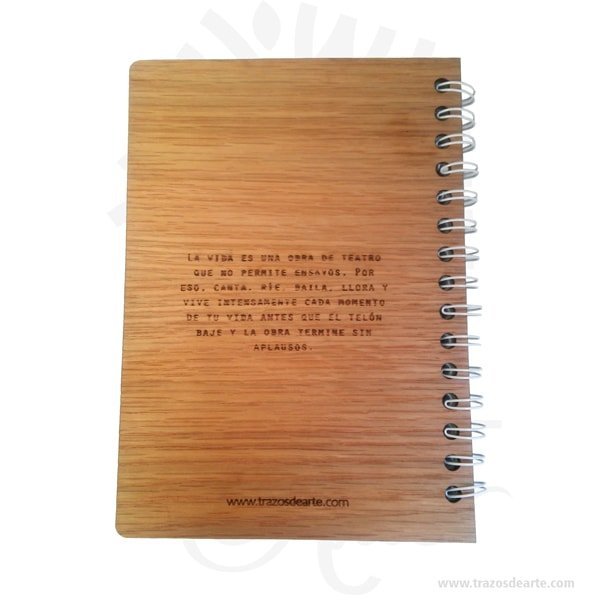 La vida es una obra de teatro
que no permite ensayos. Por
eso, canta, ríe, baila, llora y
vive intensamente cada momento
de tu vida antes que el telón
baje y la obra termine sin
aplausos.
www.trazosdearte.com
www.trazosdearte.com